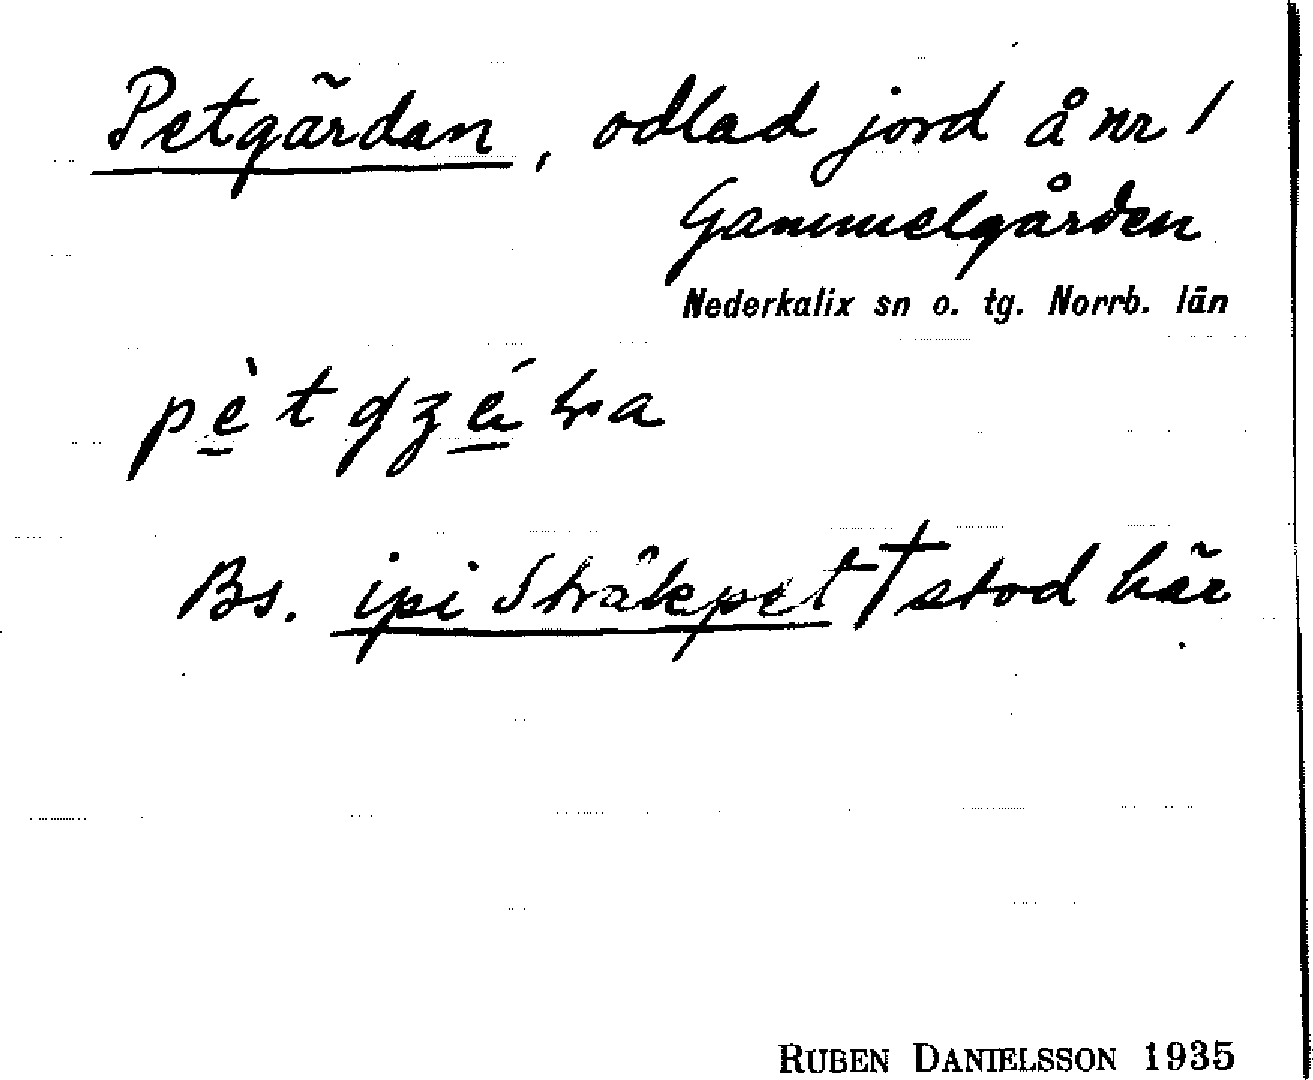 Petgärdan, odlad jord å nr 1
Gammelgården
Nederkalix sn o. tg. Norrb. län
Bs. ipi Stråkpet † stod här
RUBEN DANIELSSON 1935